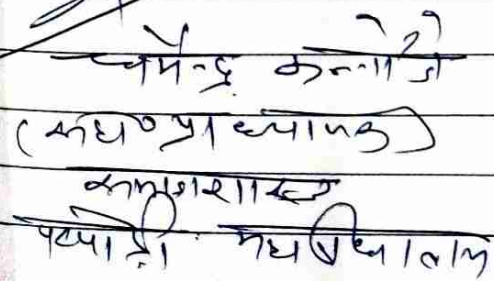 धर्मेन्द्र कन्नौजे
(सहा० प्राध्यापक)
समाजशास्त्र
महाविद्यालय